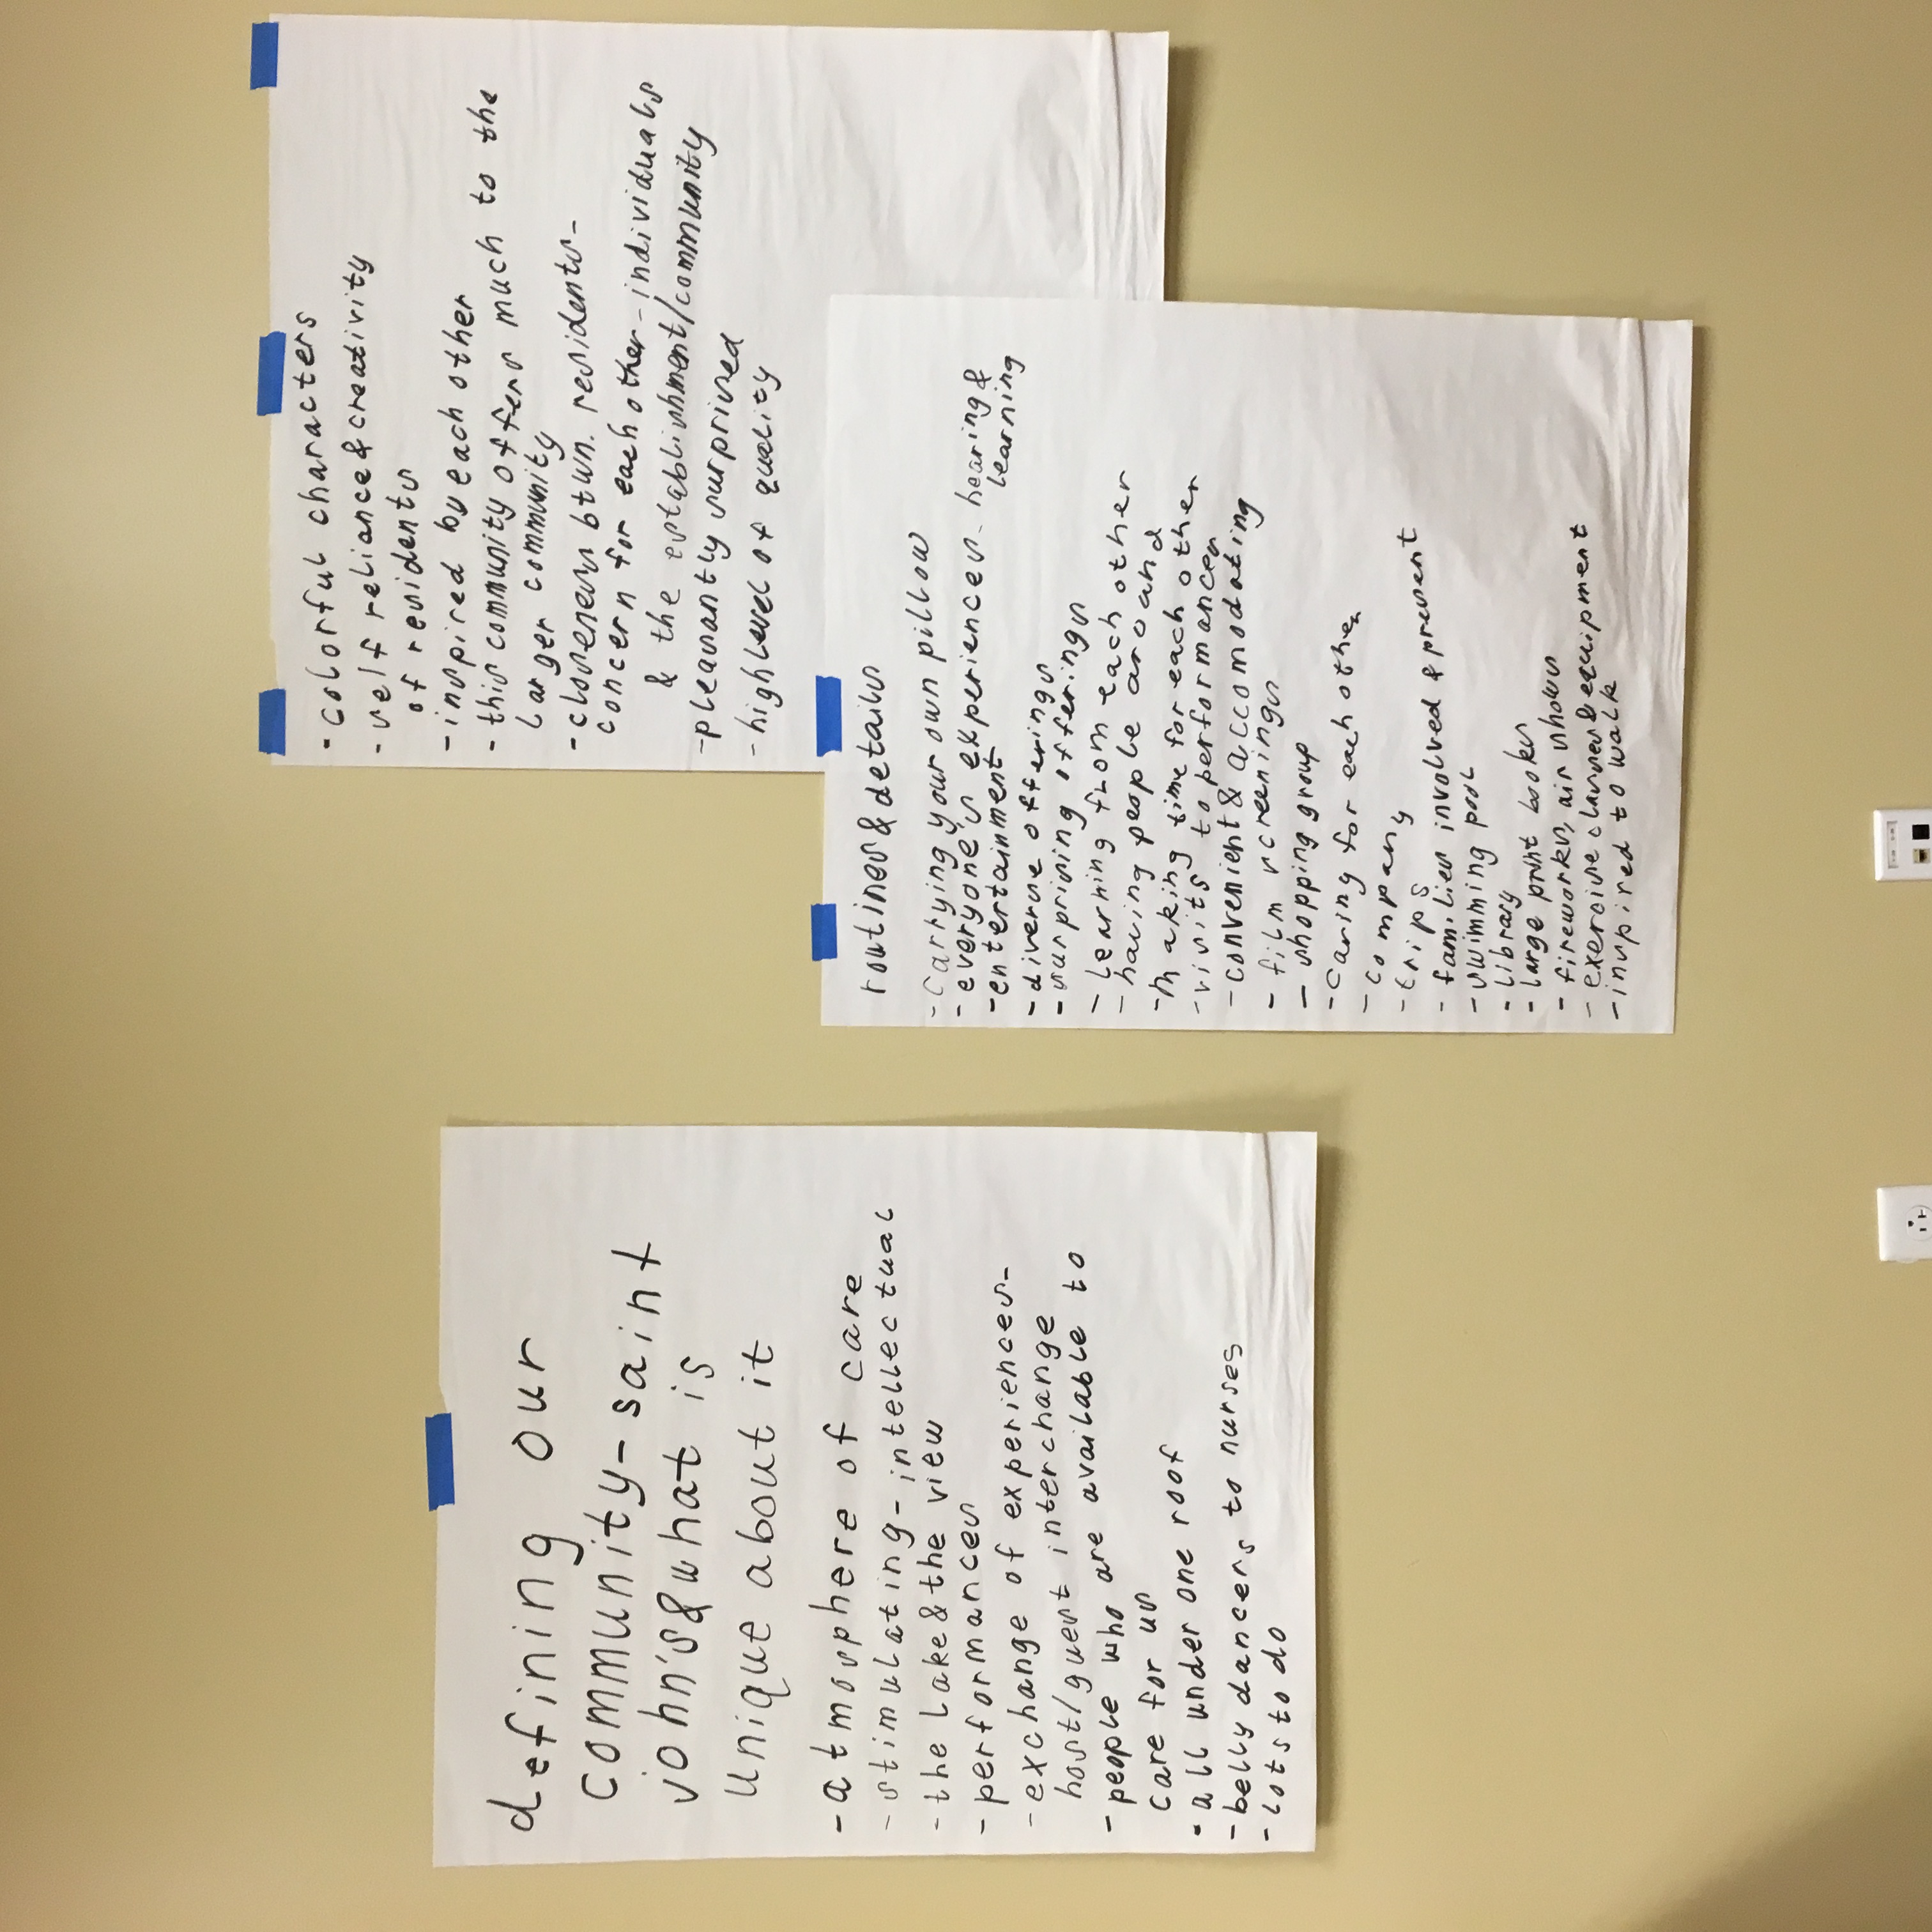 defining our
community-saint
john's & what is
unique about it
- atmosphere of care
- stimulating - intellectual
- the lake & the view
- performances
- exchange of experiences -
host/guest interchange
- people who are available to
care for us
- all under one roof
- belly dancers to nurses
- lots to do
- colorful characters
- self reliance & creativity
of residents
- inspired by each other
- this community offers much to the
larger community
- closeness btwn. residents -
concern for each other - individuals
& the establishment/community
- pleasantly surprised
- high level of quality
routines & details
- carrying your own pillow
- everyone's experiences - hearing &
learning
- entertainment
- diverse offerings
- surprising offerings
- learning from each other
- having people around
- making time for each other
- visits to performances
- convenient & accomodating
- film screenings
- shopping group
- caring for each other
- company
- trips
- families involved & present
- swimming pool
- library
- large print books
- fireworks, air shows
- exercise classes & equipment
- inspired to walk